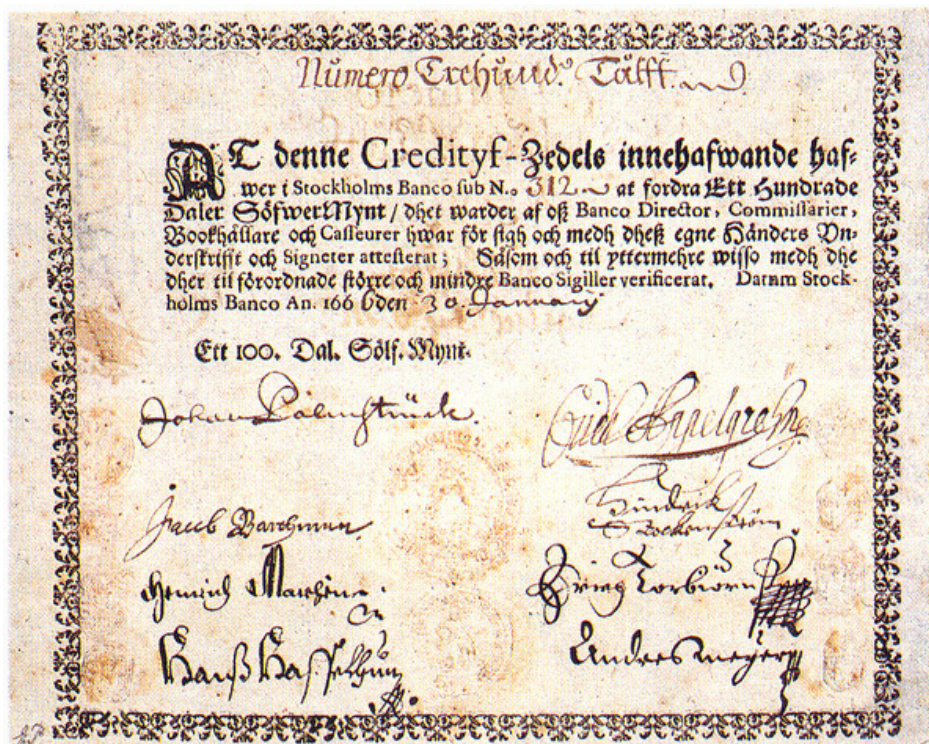 Numero Trehund. Tålff.
AT denne Credityf-Zedels innehafwande haf-
wer i Stockholms Banco sub N.o 312 at fordra Ett Hundrade
Daler SölfwerMynt / dhet warder af oß Banco Director, Commissarier,
Bookhållare och Casseurer hwar för sigh och medh dheß egne Händers Vn-
derskrifft och Signeter attesterat; Såsom och til yttermehre wisso medh dhe
dher til förordnade större och mindre Banco Sigiller verificerat. Datum Stock-
holms Banco An. 166 6 den 30. January
Ett 100. Dal. Sölf. Mynt.
Johan Palmstruck.
Appelgrehn
Jacob Barchman
Hindrik
Hans
Torbiörn
Anders Meyer